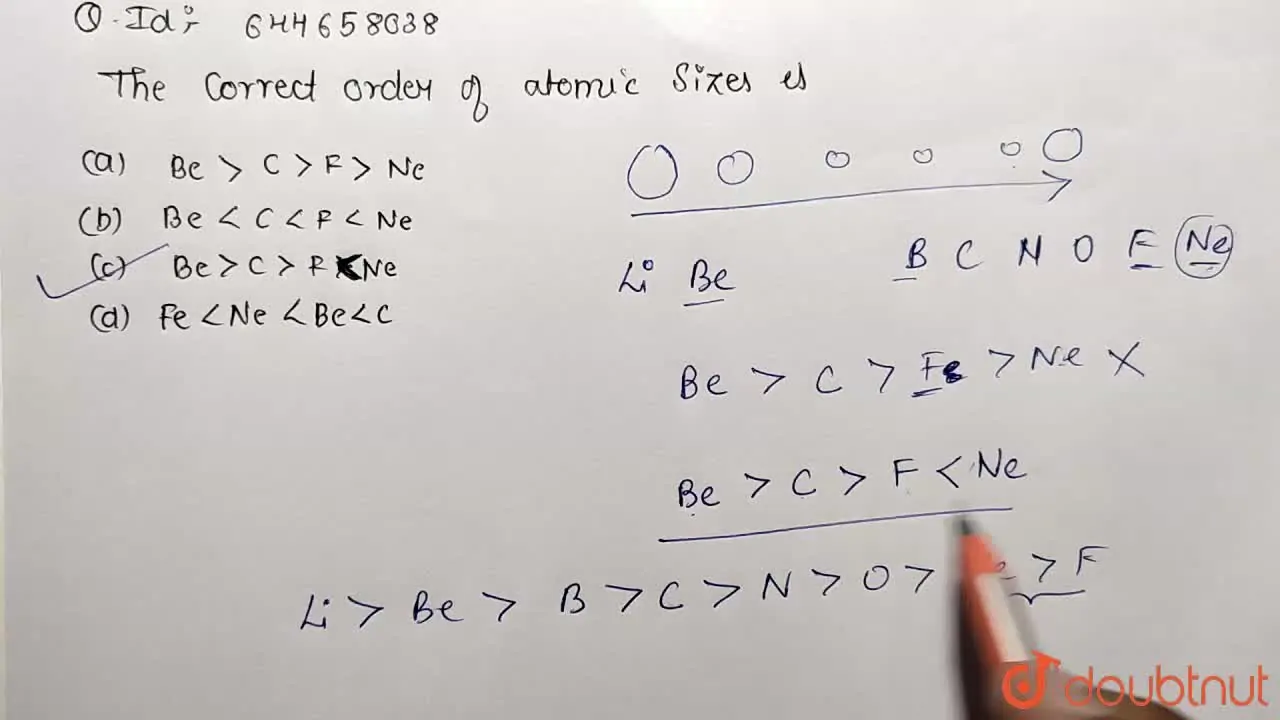 Q. Id: 644658038
The Correct order of atomic Sizes is
(a) Be > C > F > Ne
(b) Be < C < F < Ne
(c) Be > C > F < Ne
(d) Fe < Ne < Be < C
Li Be B C N O F Ne
Be > C > Fe > Ne X
Be > C > F < Ne
Li > Be > B > C > N > O > > F
doubtnut